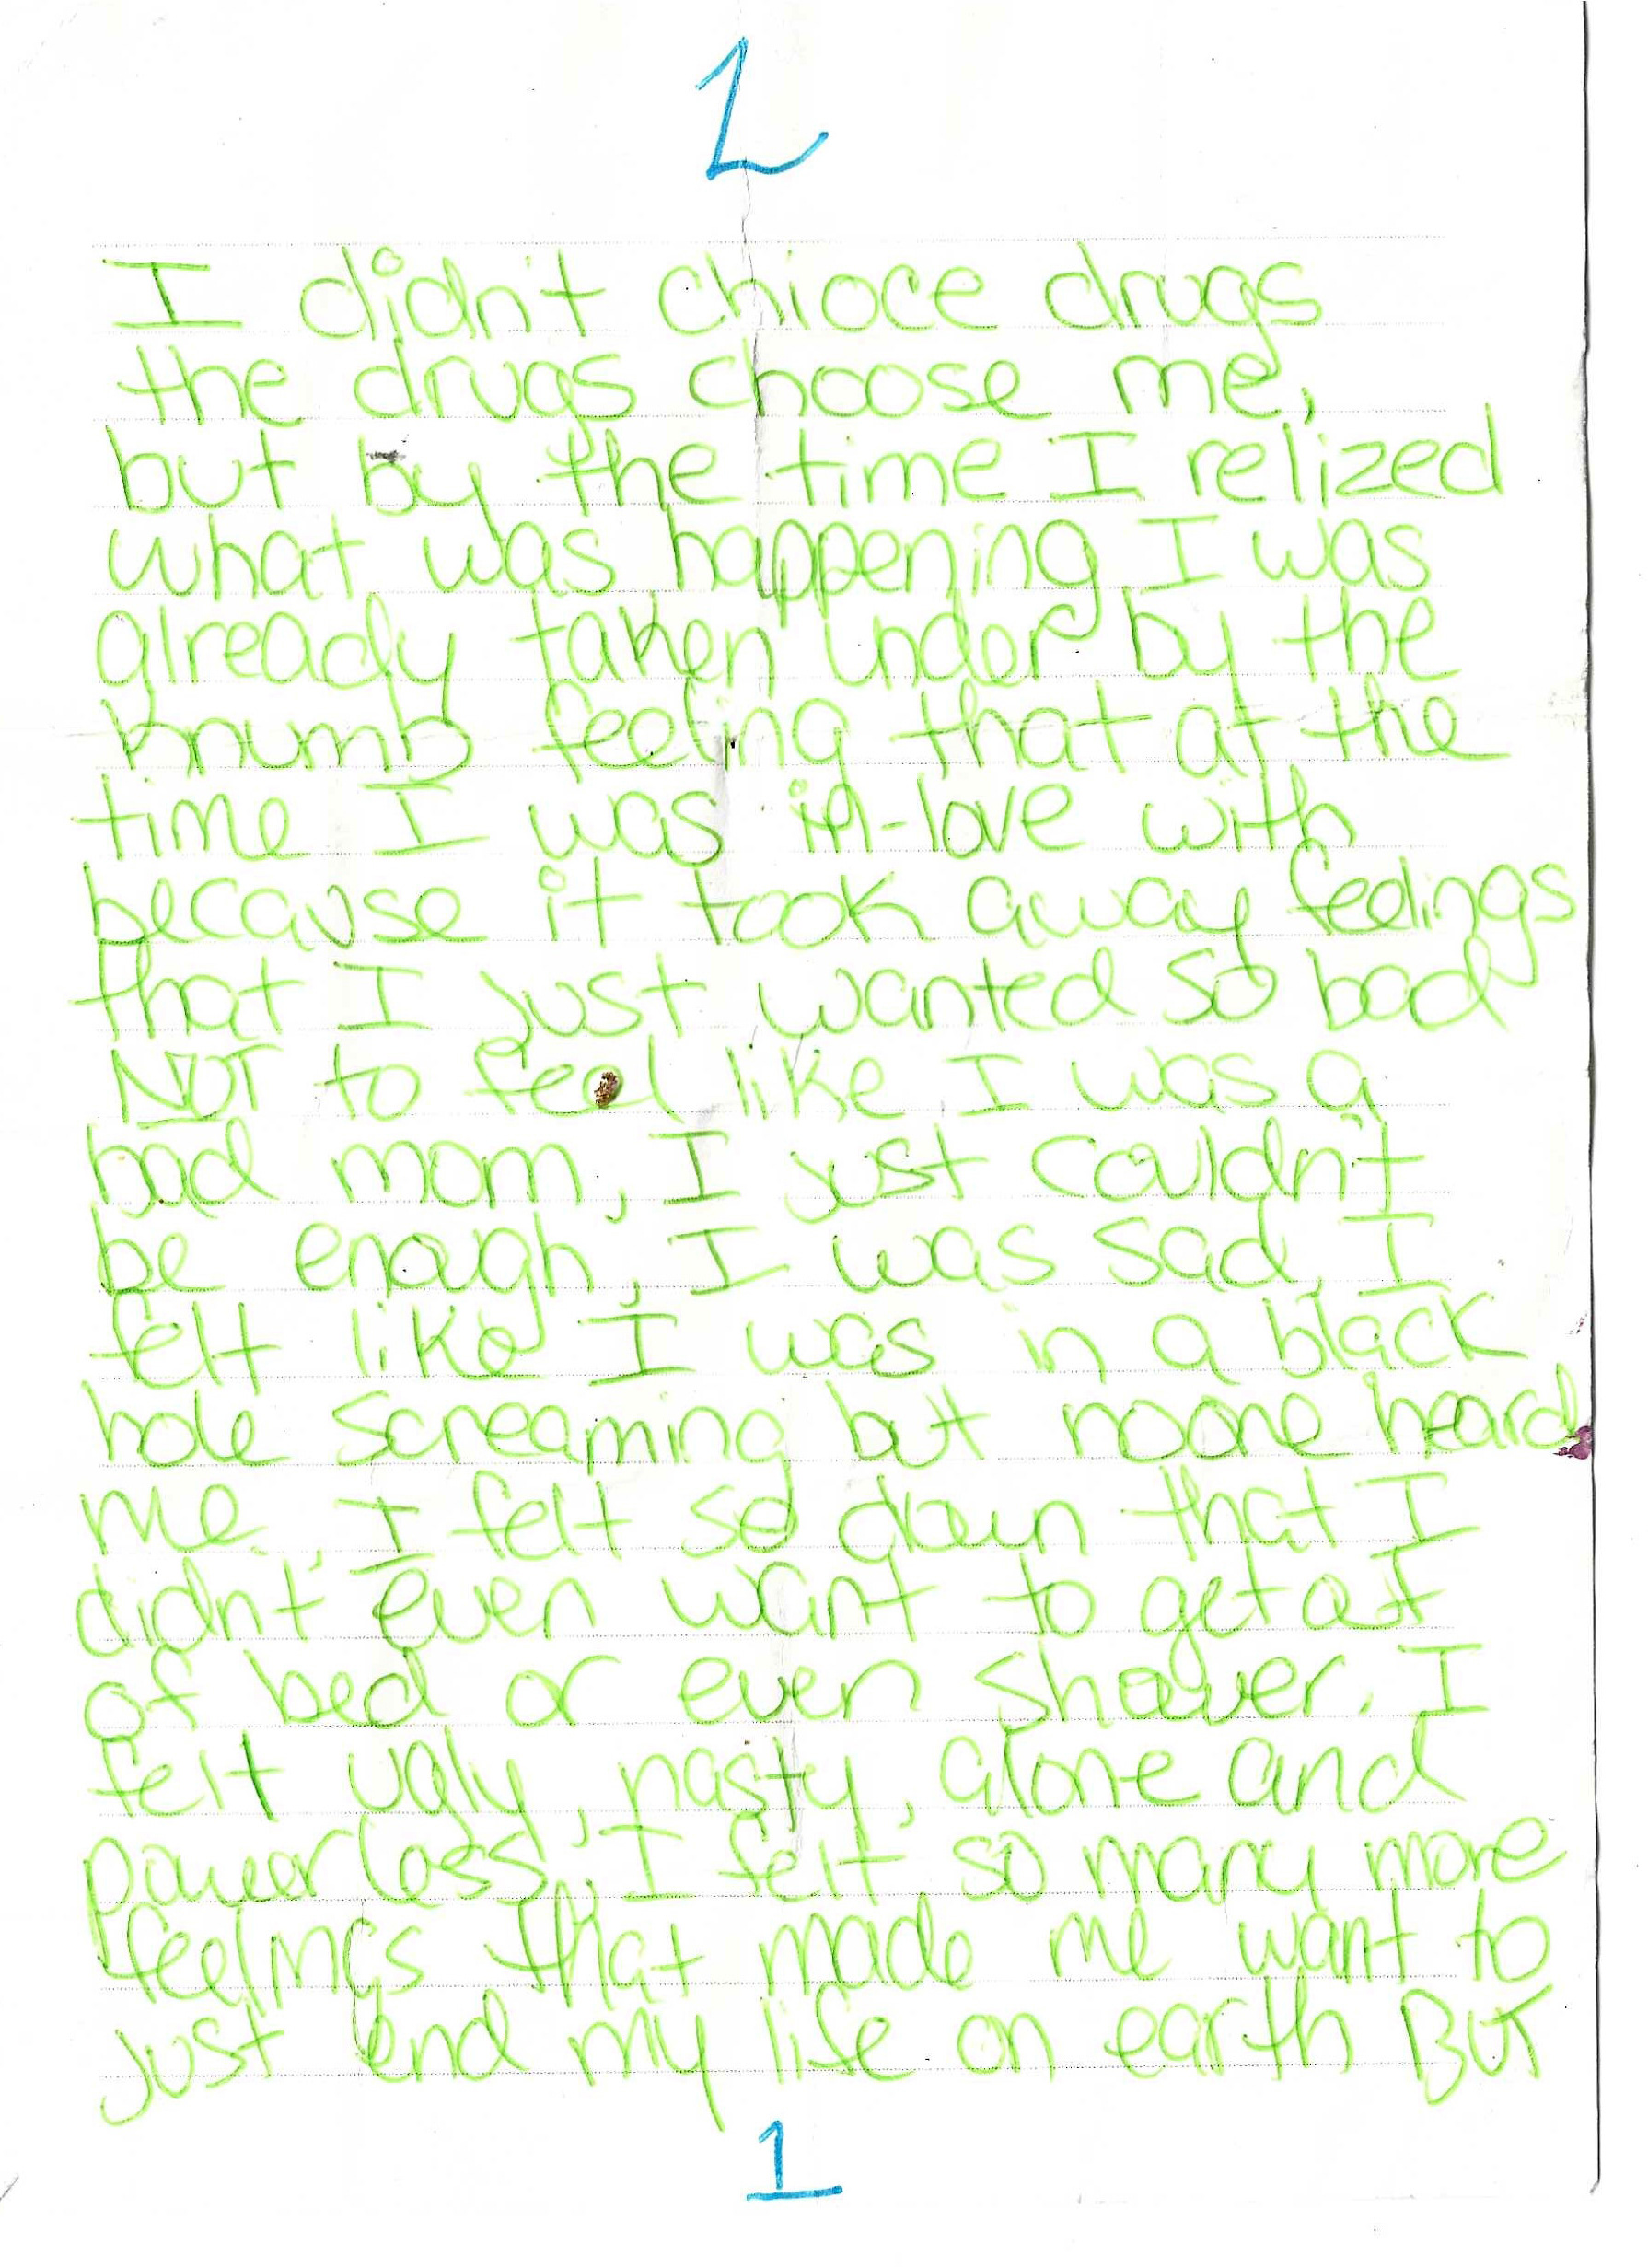 2
I didn't chioce drugs
the drugs choose me,
but by the time I relized
what was happening I was
already taken under by the
knumb feeling that at the
time I was in-love with
because it took away feelings
that I just wanted so bad
NOT to feel like I was a
bad mom, I just couldn't
be enough, I was sad, I
felt like I was in a black
hole screaming but noone heard
me, I felt so down that I
didn't even want to get out
of bed or even shower. I
felt ugly, nasty, alone and
powerless, I felt so many more
feelings that made me want to
just end my life on earth BUT
1